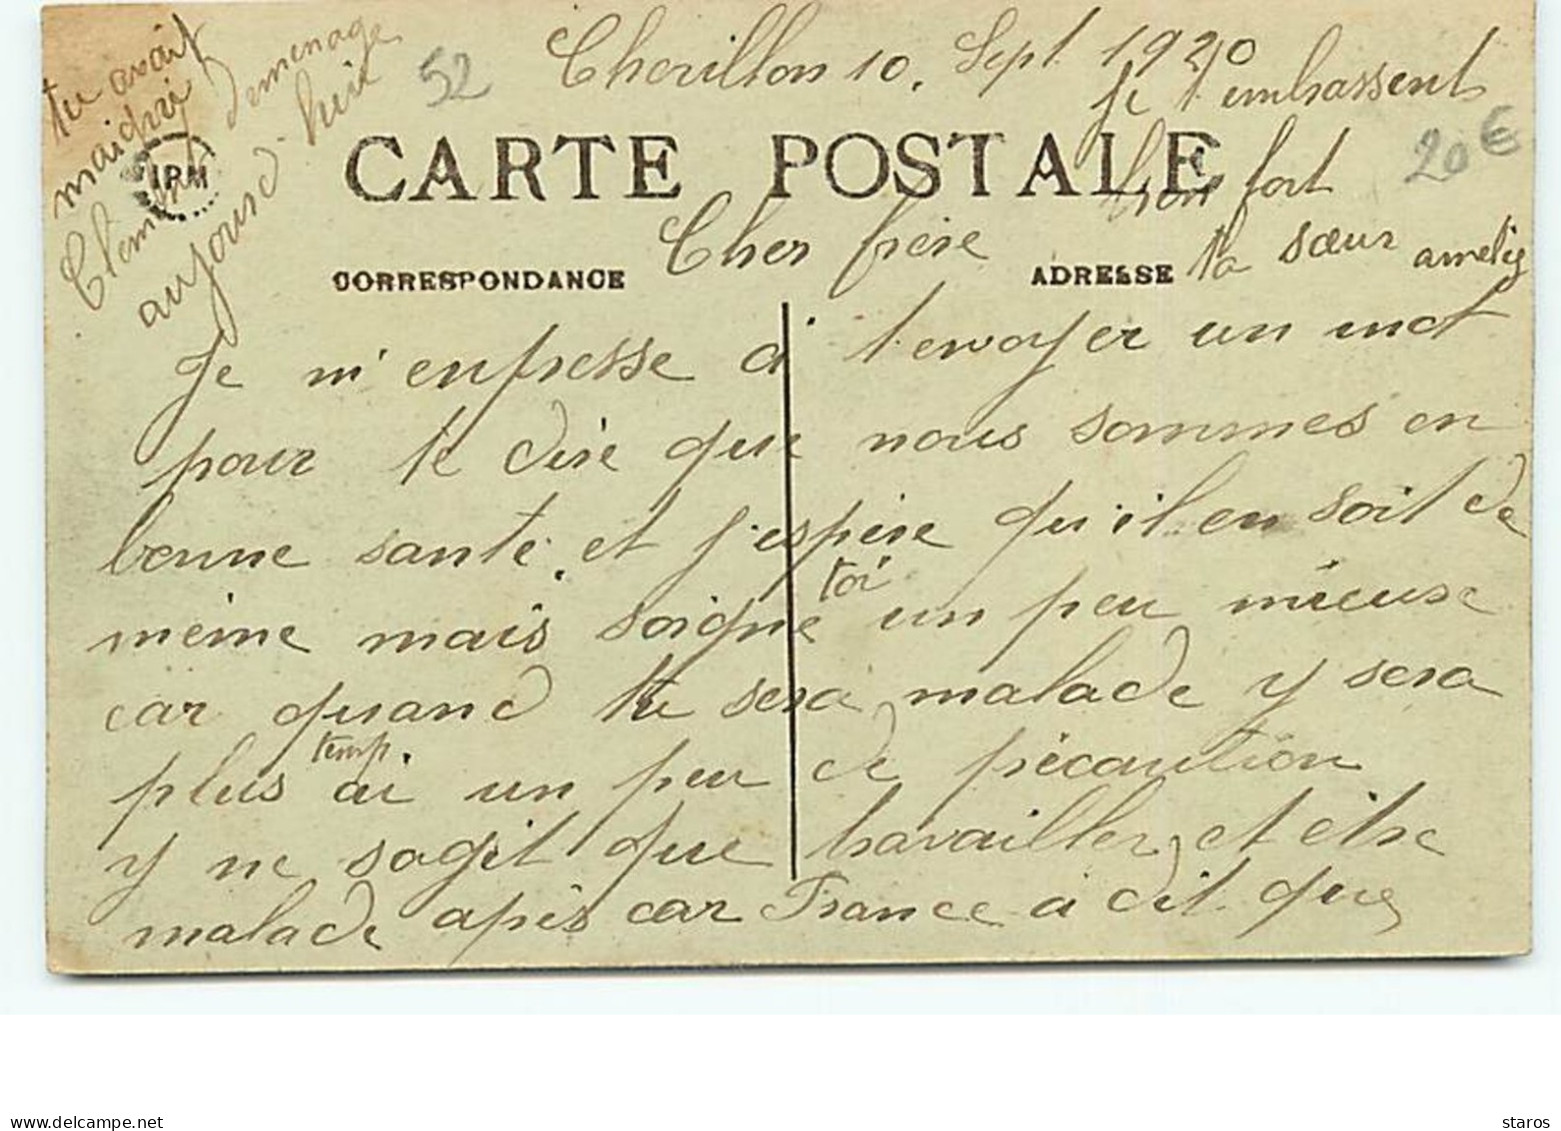 Cherillon 10. Sept. 1920
52
CARTE POSTALE
20€
CORRESPONDANCE
ADRESSE
IPM
Cher frère
Je m'enpresse a t'envoyer un mot
pour te dire que nous sommes en
bonne santé. et j'espère qu'il en soit de
même mais soigne toi un peu mieuse
car quand tu sera malade y sera
plus temp. ai un peu de précaution
y ne sagit que travailler et être
malade après car France a dit que
tu avait
maigri
Clément demenage
aujourd-huit
je t'embrassent
bien fort
ta sœur amelie
www.delcampe.net
staros